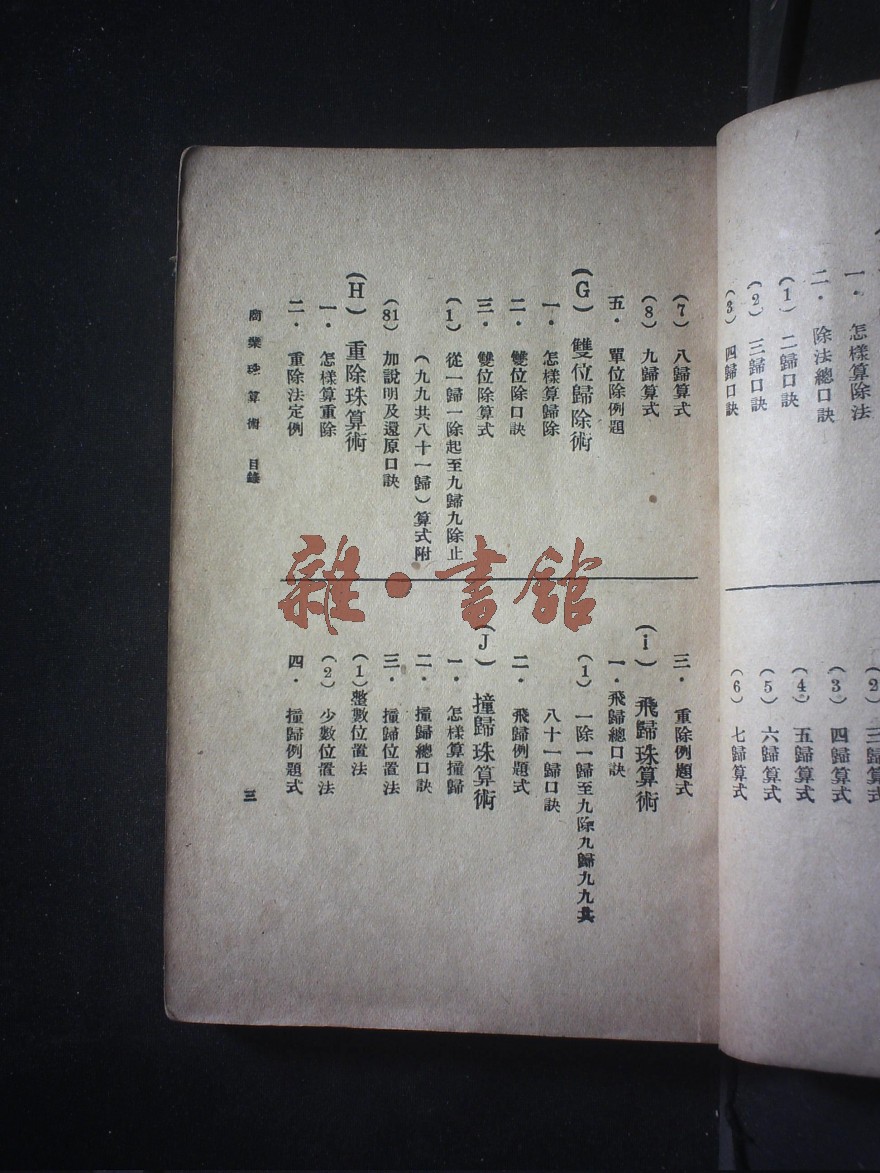 一．怎樣算除法
二．除法總口訣
(1) 二歸口訣
(2) 三歸口訣
(3) 四歸口訣
(2) 三歸算式
(3) 四歸算式
(4) 五歸算式
(5) 六歸算式
(6) 七歸算式
(7) 八歸算式
(8) 九歸算式
五．單位除例題
(G) 雙位歸除術
一．怎樣算歸除
二．雙位除口訣
三．雙位除算式
(1) 從一歸一除起至九歸九除止
(九九共八十一歸)算式附
(81) 加說明及還原口訣
(H) 重除珠算術
一．怎樣算重除
二．重除法定例
三．重除例題式
(i) 飛歸珠算術
一．飛歸總口訣
(1) 一除一歸至九除九歸九九共
八十一歸口訣
二．飛歸例題式
(J) 撞歸珠算術
一．怎樣算撞歸
二．撞歸總口訣
三．撞歸位置法
(1) 整數位置法
(2) 少數位置法
四．撞歸例題式
商業珠算術 目錄
三
雜·書館